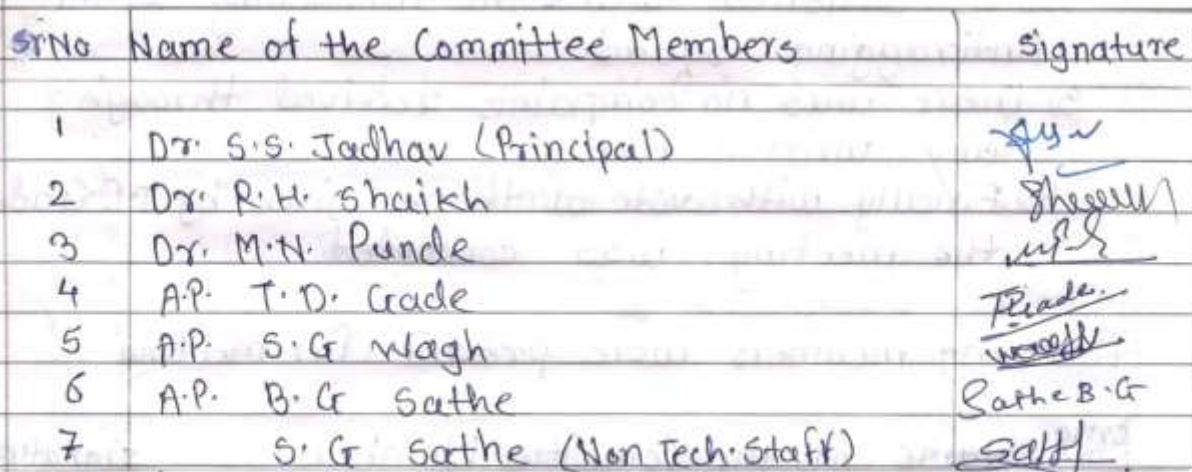 SrNo Name of the Committee Members Signature
1 Dr. S.S. Jadhav (Principal)
2 Dr. R.H. Shaikh
3 Dr. M.N. Punde
4 A.P. T.D. Gade
5 A.P. S.G Wagh
6 A.P. B.G Sathe Sathe B.G
7 S.G Sathe (Non Tech. Staff)